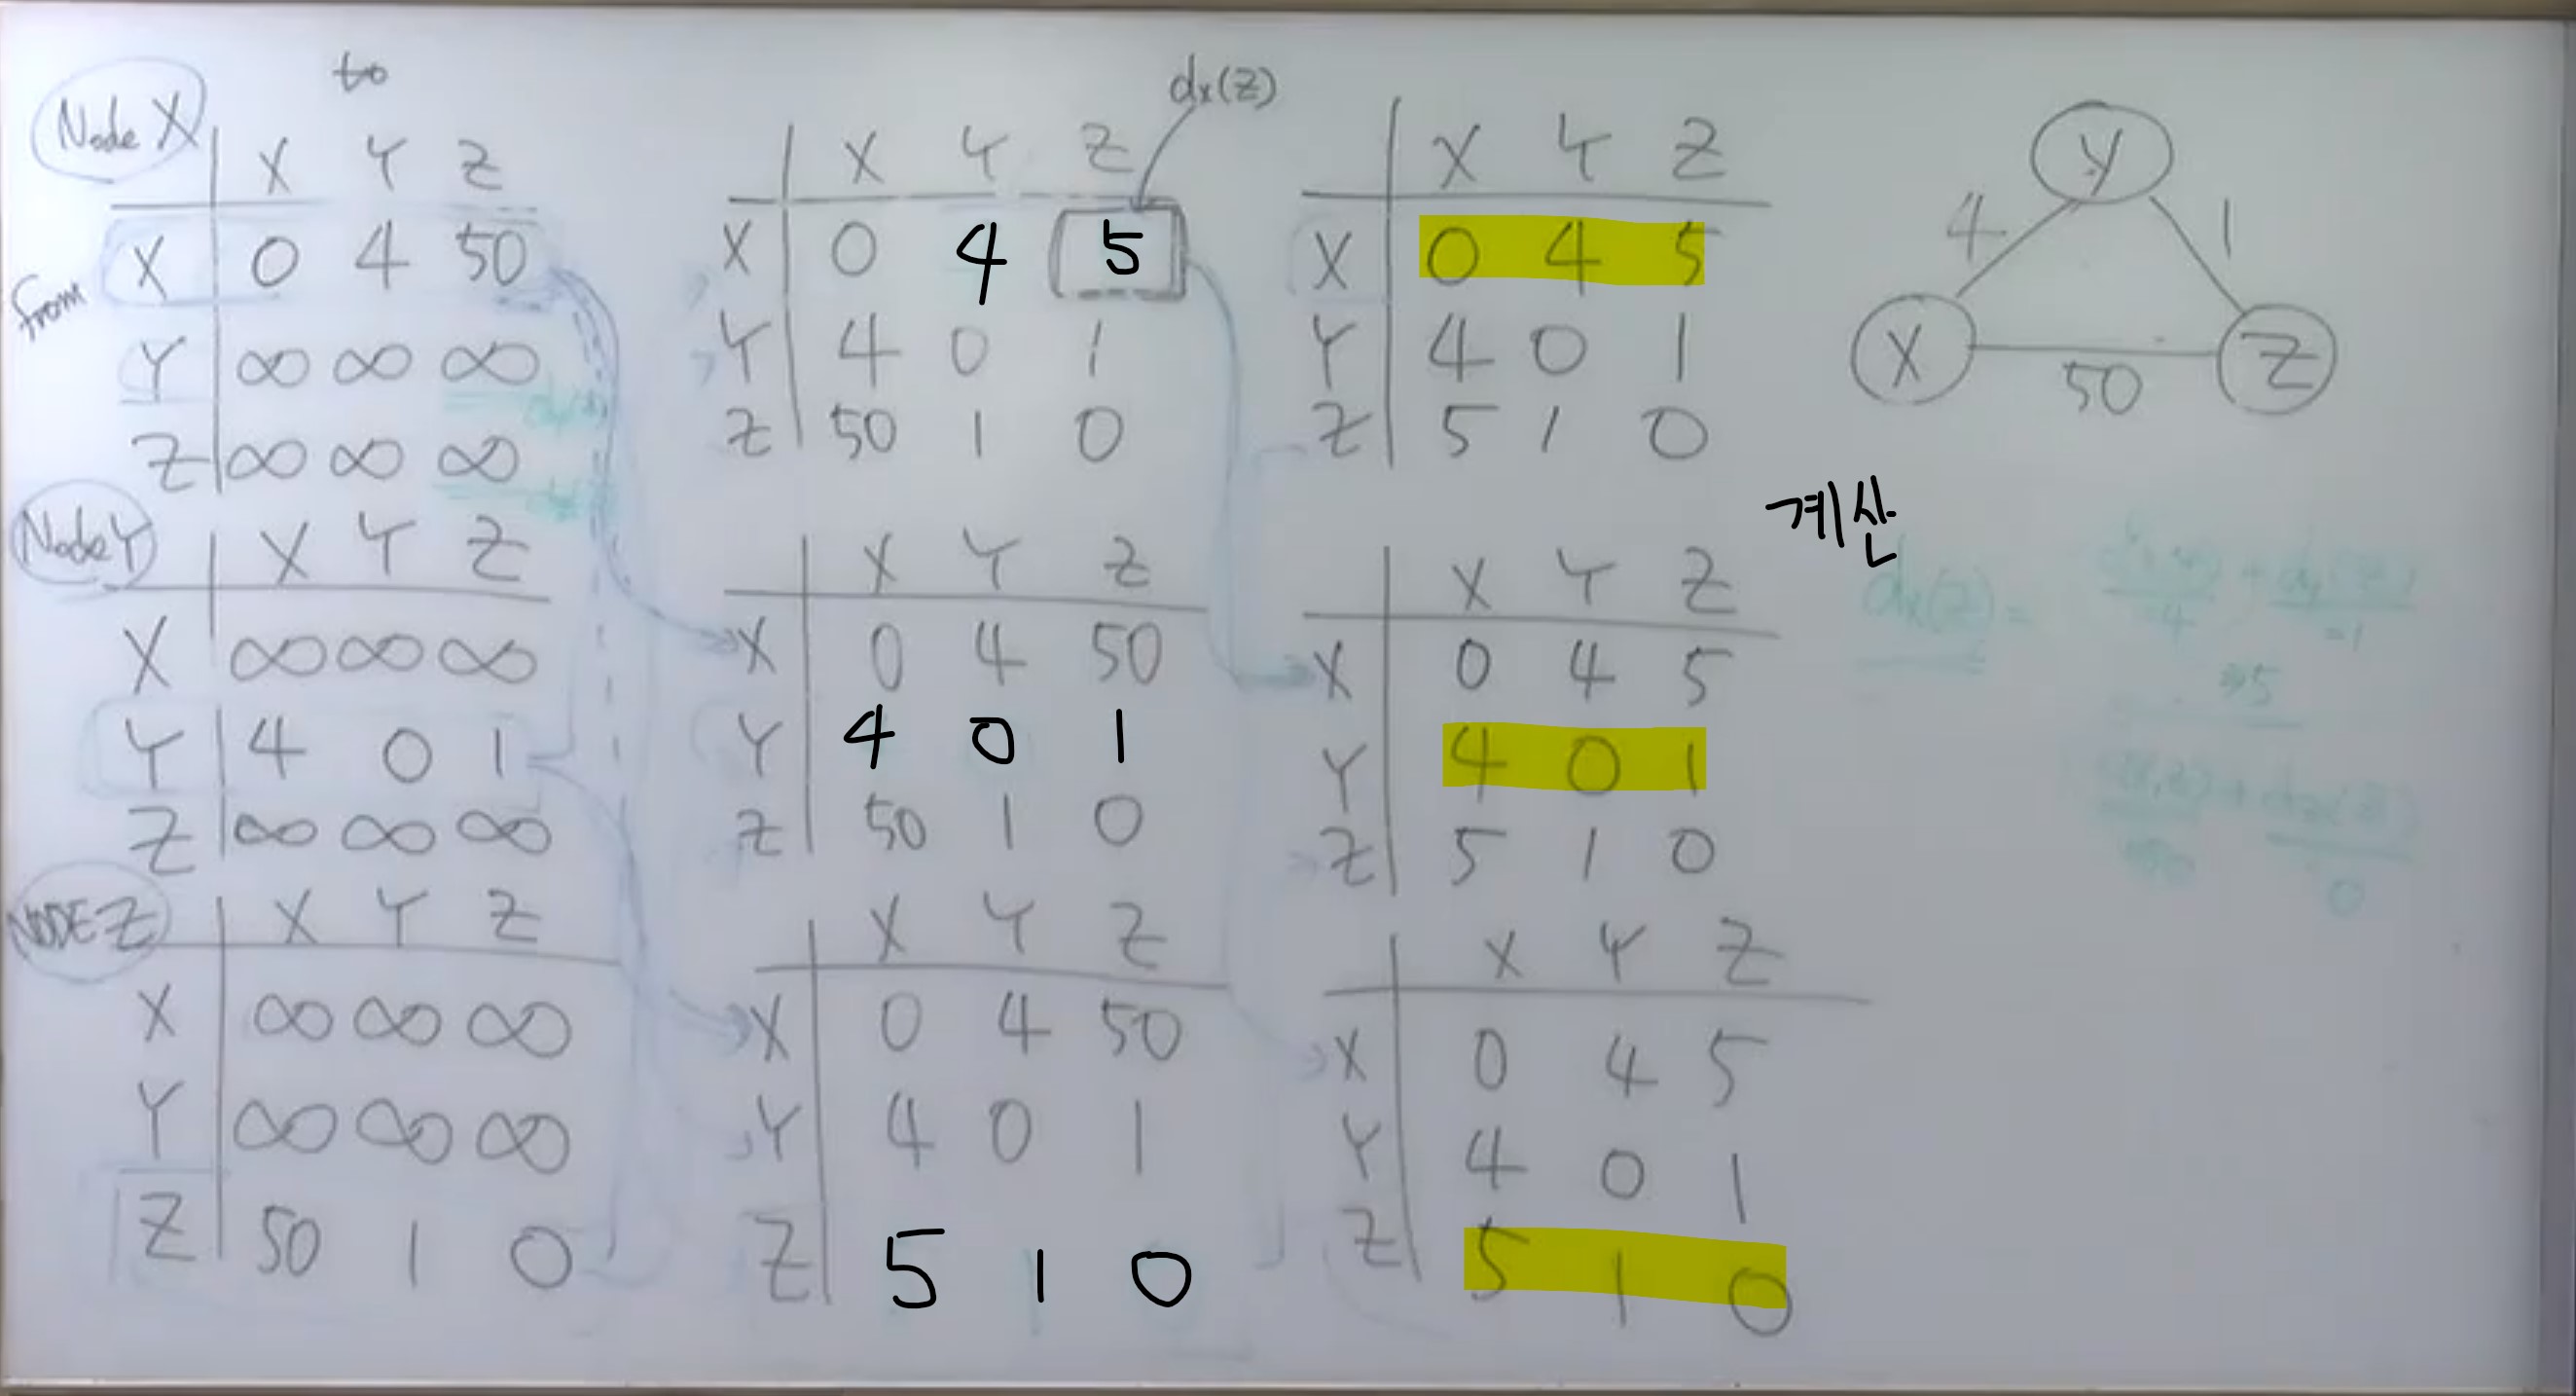 to
Node X
X Y Z
from
X 0 4 50
Y ∞ ∞ ∞
Z ∞ ∞ ∞
Node Y
X Y Z
X ∞ ∞ ∞
Y 4 0 1
Z ∞ ∞ ∞
NODE Z
X Y Z
X ∞ ∞ ∞
Y ∞ ∞ ∞
Z 50 1 0
dx(Z)
X Y Z
X 0 4 5
Y 4 0 1
Z 50 1 0
X Y Z
X 0 4 50
Y 4 0 1
Z 50 1 0
X Y Z
X 0 4 50
Y 4 0 1
Z 5 1 0
X Y Z
X 0 4 5
Y 4 0 1
Z 5 1 0
X Y Z
X 0 4 5
Y 4 0 1
Z 5 1 0
X Y Z
X 0 4 5
Y 4 0 1
Z 5 1 0
Y
4 1
X Z
50
계산
dx(Z) =
=1
5
0